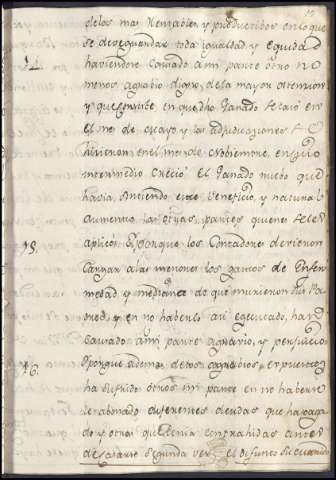 de las mas rentables y productivos en lo que
se deve guardar toda igualdad y equidad
14. haviendose causado a mi parte otro no
menos agravio digno de la mayor atencion
y que consiste en que dho Ganado se tasó en
el mes de Mayo y las adjudicaciones se
hizieron en el mes de Noviembre, en cuio
intermedio creció el Ganado mucho que
havia, siniendo este veneficio, y natural
aumento las otras partes quienes se les
15. aplicó: Y porque los Contadores devieron
cargar a las menores los gastos de enfer
medad y medicina de que murieron sus Pa
dres, y en no haberlo asi egecutado, han
causado a mi parte agravio, y perjuicio
16. Y porque ademas de los agravios expresados
ha sufrido otros mi parte en no haberse
le abonado diferentes deudas que ha paga
do y otras que tenia contrahidas antes
de casarse segunda vez el difunto su marido